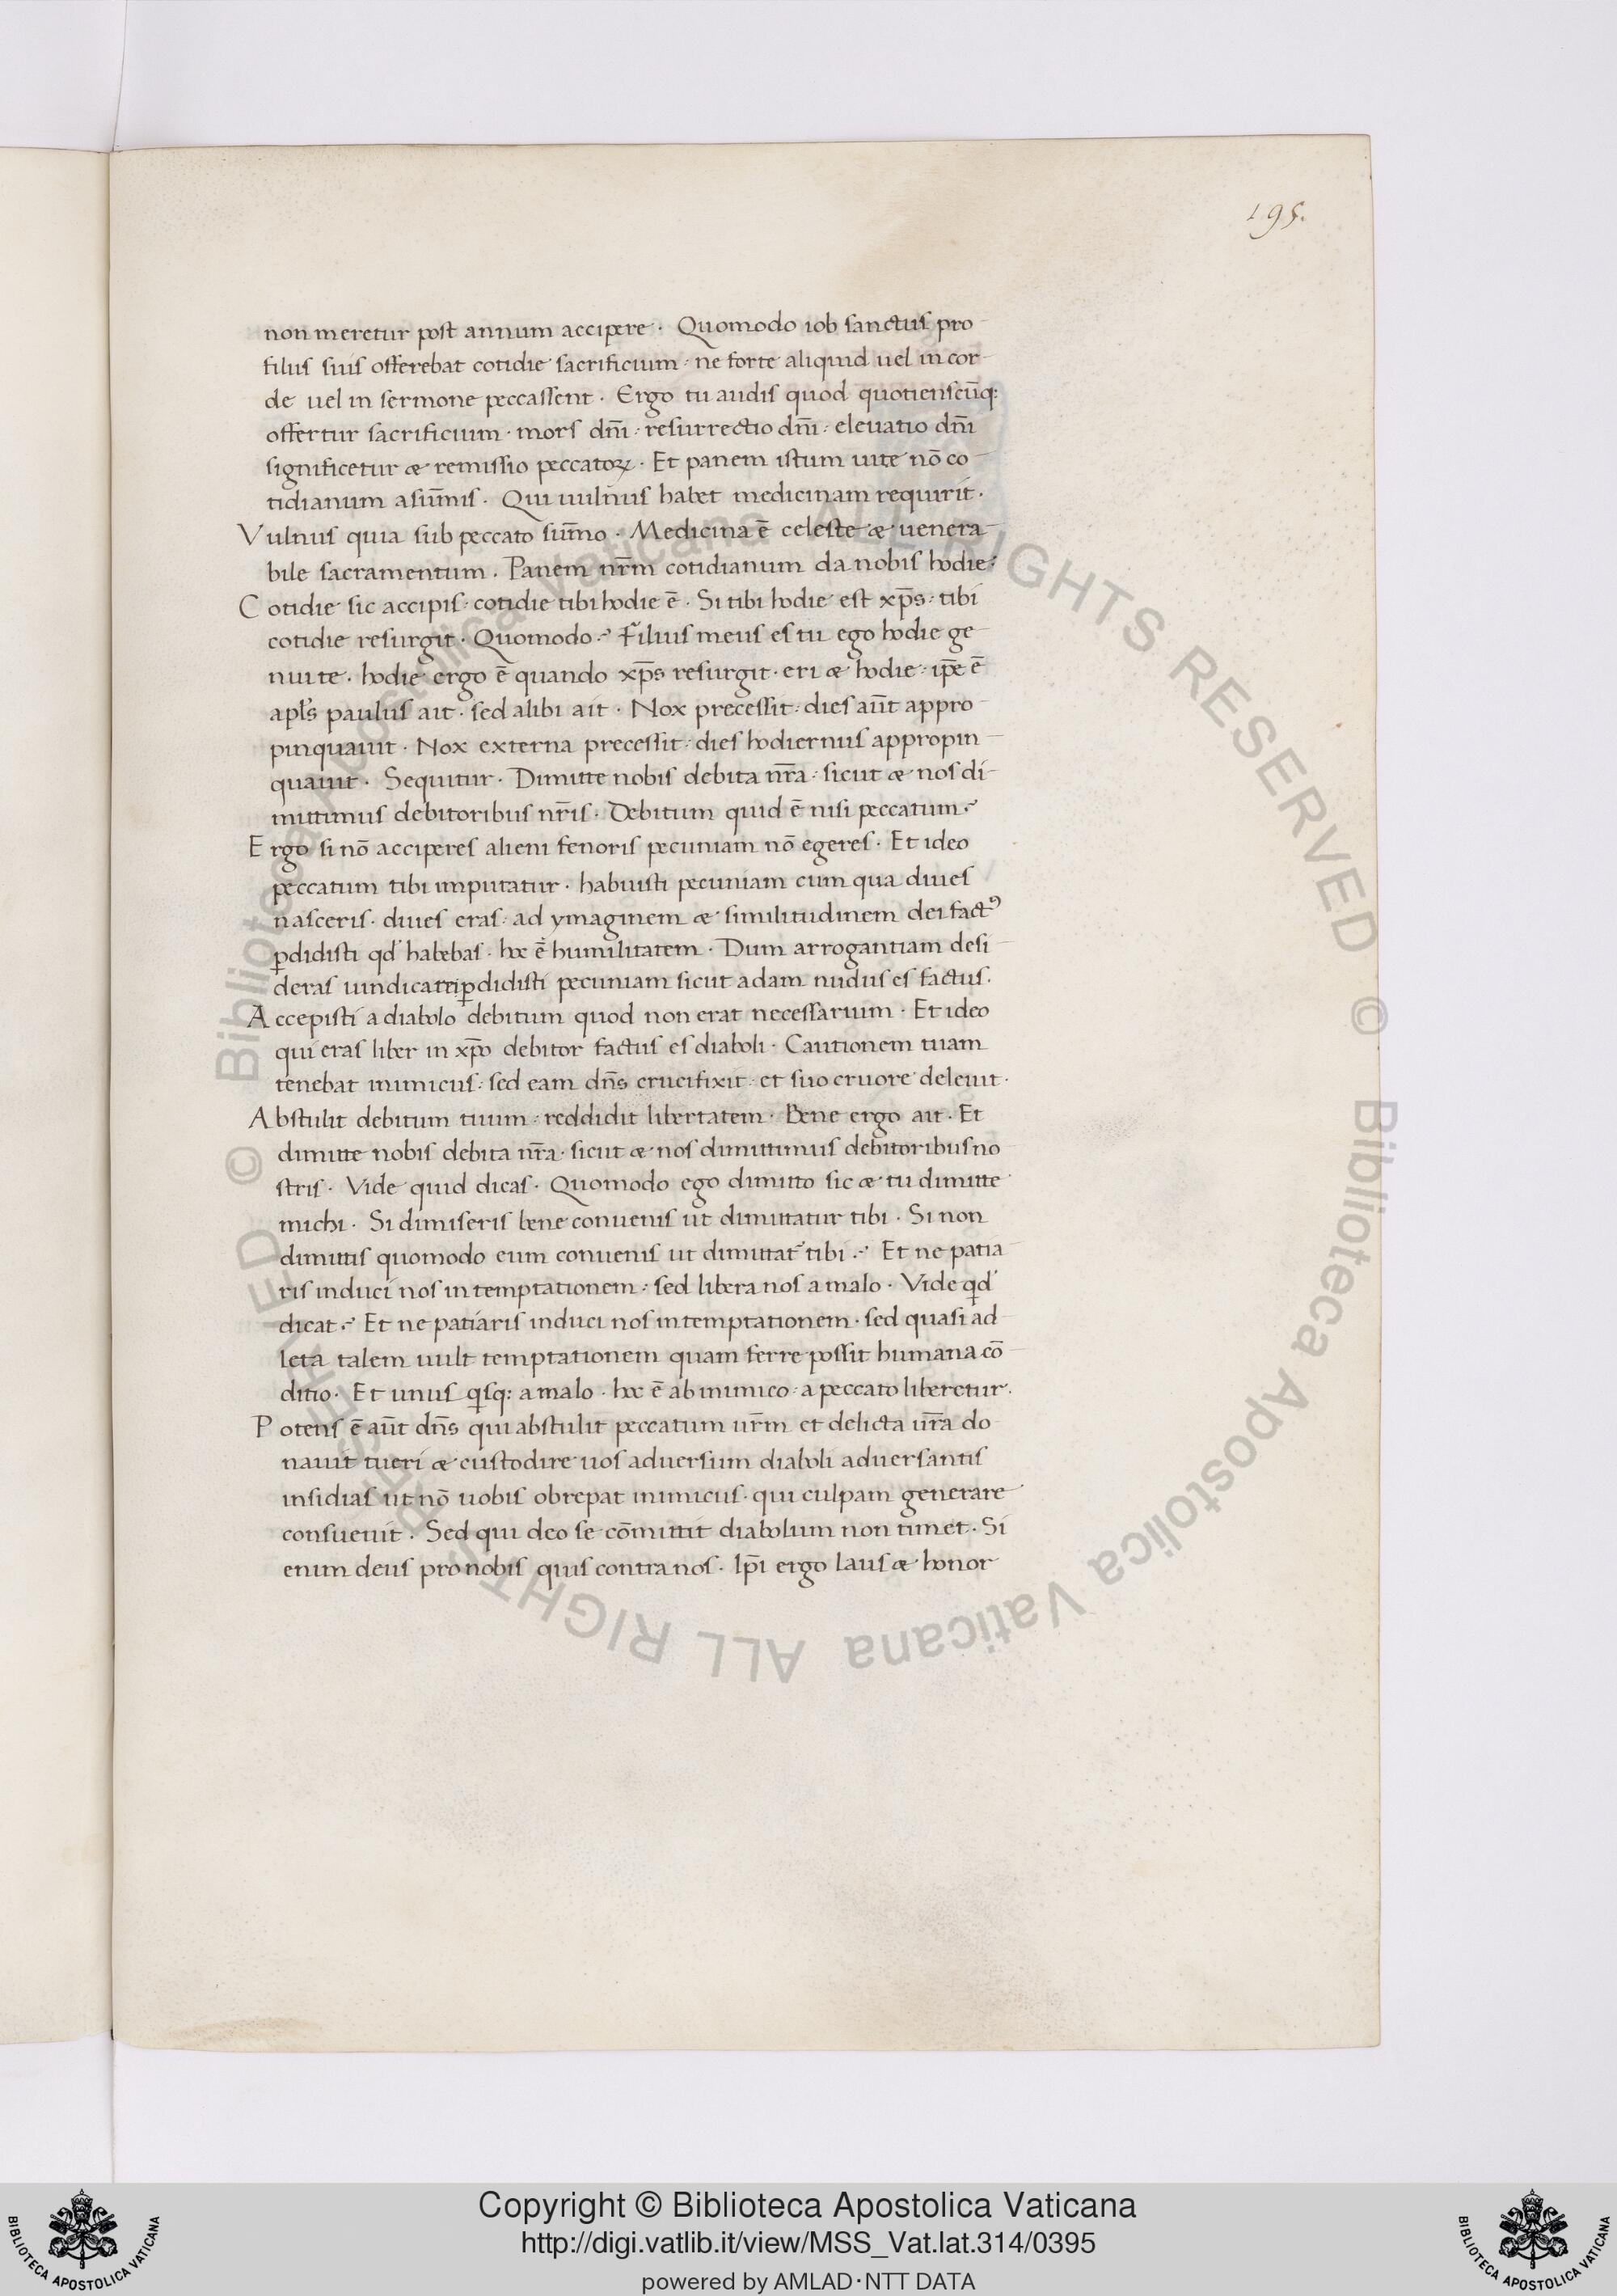 195.
non meretur post annum accipere. Quomodo iob sanctus pro
filiis suis offerebat cotidie sacrificium · ne forte aliquid uel in cor
de uel in sermone peccassent. Ergo tu audis quod quotienscūq:
offertur sacrificium · mors dn̄i · resurrectio dn̄i · eleuatio dn̄i
significetur æ remissio peccatoꝝ. Et panem istum uite nō co
tidianum asūmis. Qui uulnus habet medicinam requirit.
Vulnus quia sub peccato sūmo. Medicina ē celeste æ uenera
bile sacramentum. Panem nr̄m cotidianum da nobis hodie:
Cotidie sic accipis: cotidie tibi hodie ē. Si tibi hodie est xp̄s: tibi
cotidie resurgit. Quomodo? Filius meus es tu ego hodie ge
nui te. hodie ergo ē quando xp̄s resurgit. eri æ hodie: ip̄e ē
apl̄s paulus ait. sed alibi ait. Nox precessit: dies aūt appro
pinquauit. Nox externa precessit: dies hodiernus appropin
quauit. Sequitur. Dimitte nobis debita nr̄a: sicut æ nos di
mittimus debitoribus nr̄is. Debitum quid ē nisi peccatum?
Ergo si nō acciperes alieni fenoris pecuniam nō egeres. Et ideo
peccatum tibi imputatur. habuisti pecuniam cum qua diues
nasceris. diues eras: ad ymaginem æ similitudinem dei factꝰ
ꝑdidisti qd' habebas. hoc ē humilitatem. Dum arrogantiam desi
deras uindicare ꝑdidisti pecuniam sicut adam nudus es factus.
Accepisti a diabolo debitum quod non erat necessarium. Et ideo
qui eras liber in xp̄o debitor factus es diaboli. Cautionem tuam
tenebat inimicus: sed eam dn̄s crucifixit: et suo cruore deleuit.
Abstulit debitum tuum: reddidit libertatem. Bene ergo ait. Et
dimitte nobis debita nr̄a: sicut æ nos dimittimus debitoribus no
stris. Vide quid dicas. Quomodo ego dimitto sic æ tu dimitte
michi. Si dimiseris bene conuenis ut dimittatur tibi. Si non
dimittis quomodo eum conuenis ut dimittat᷑ tibi? Et ne patia
ris induci nos in temptationem: sed libera nos a malo. Vide qd'
dicat? Et ne patiaris induci nos in temptationem. sed quasi ad
leta talem uult temptationem quam ferre possit humana cō
ditio. Et unus qisq: a malo. hoc ē ab inimico: a peccato liberetur.
Potens ē aūt dn̄s qui abstulit peccatum ur̄m et delicta ur̄a do
nauit tueri æ custodire uos aduersum diaboli aduersantis
insidias ut nō uobis obrepat inimicus. qui culpam generare
consueuit. Sed qui deo se cōmittit diabolum non timet. Si
enim deus pro nobis quis contra nos. Ip̄i ergo laus æ honor
© Biblioteca Apostolica Vaticana ALL RIGHTS RESERVED © Biblioteca Apostolica Vaticana ALL RIGHTS RESERVED
Copyright © Biblioteca Apostolica Vaticana
http://digi.vatlib.it/view/MSS_Vat.lat.314/0395
powered by AMLAD·NTT DATA
BIBLIOTECA APOSTOLICA VATICANA
BIBLIOTECA APOSTOLICA VATICANA